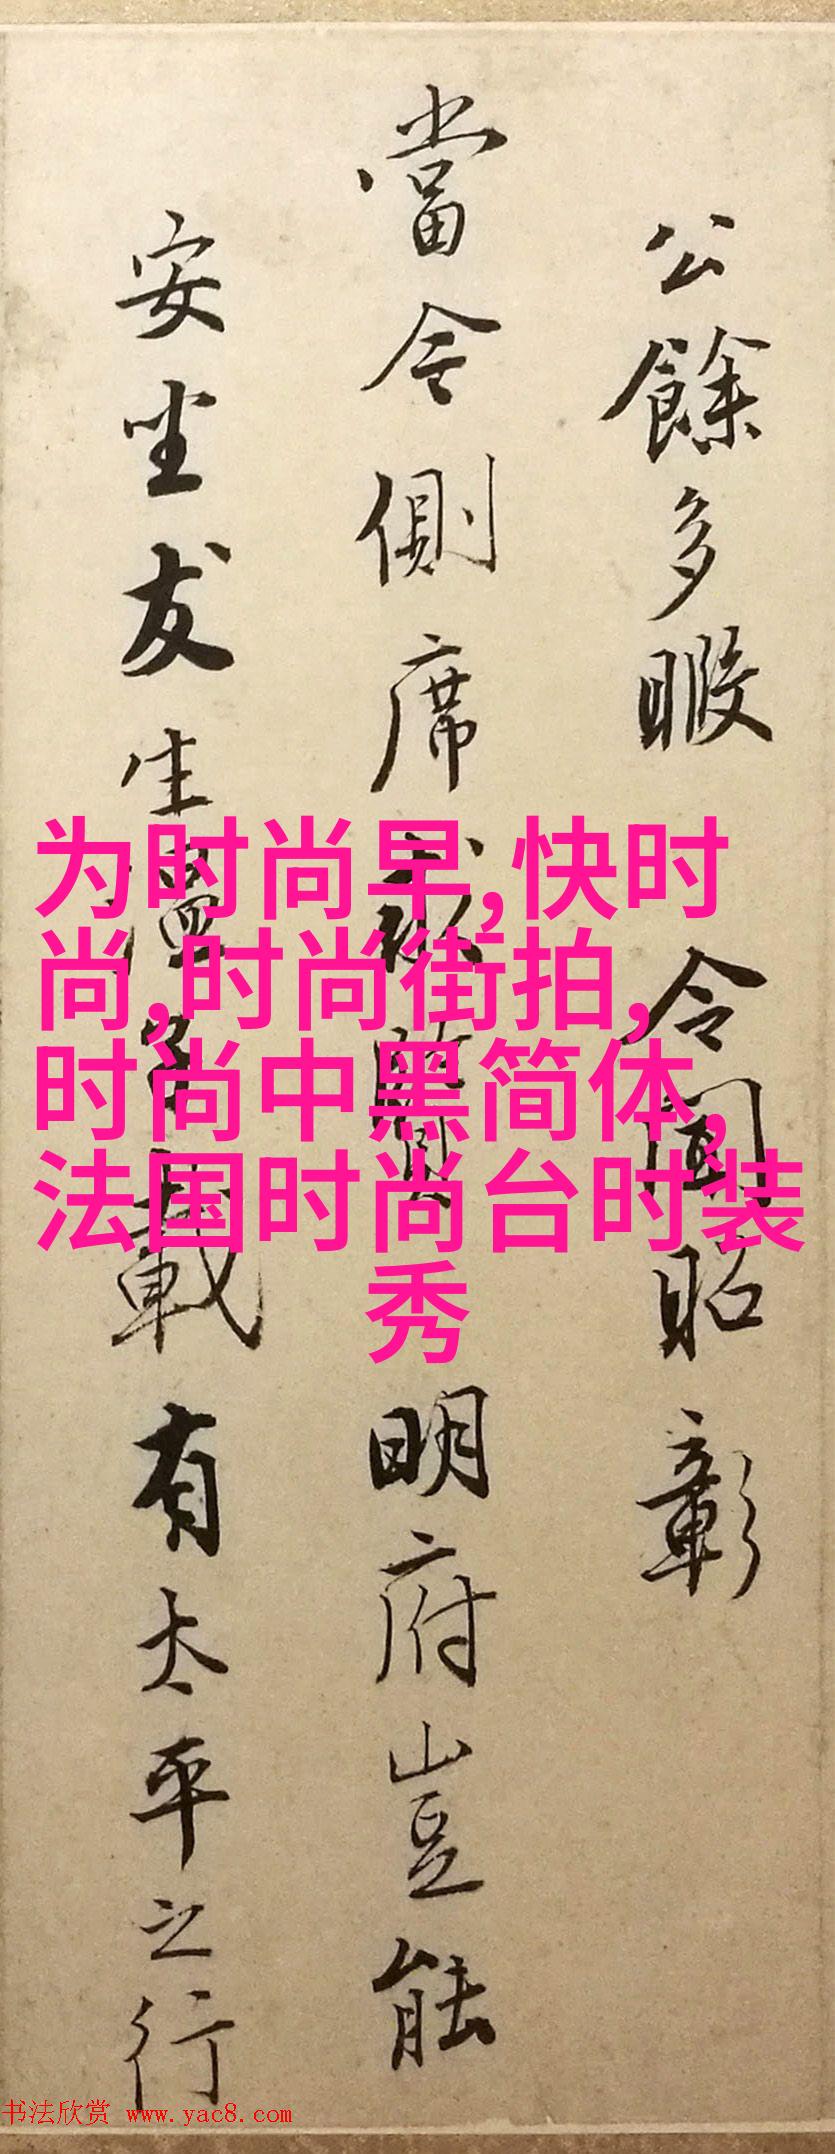 公餘多暇
令聞昭彰
當今側席求賢明府豈能
安坐友生溫名載有太平之行
为时尚早,快时
尚,时尚街拍,
时尚中黑简体,
法国时尚台时装
秀
书法欣赏 www.yac8.com